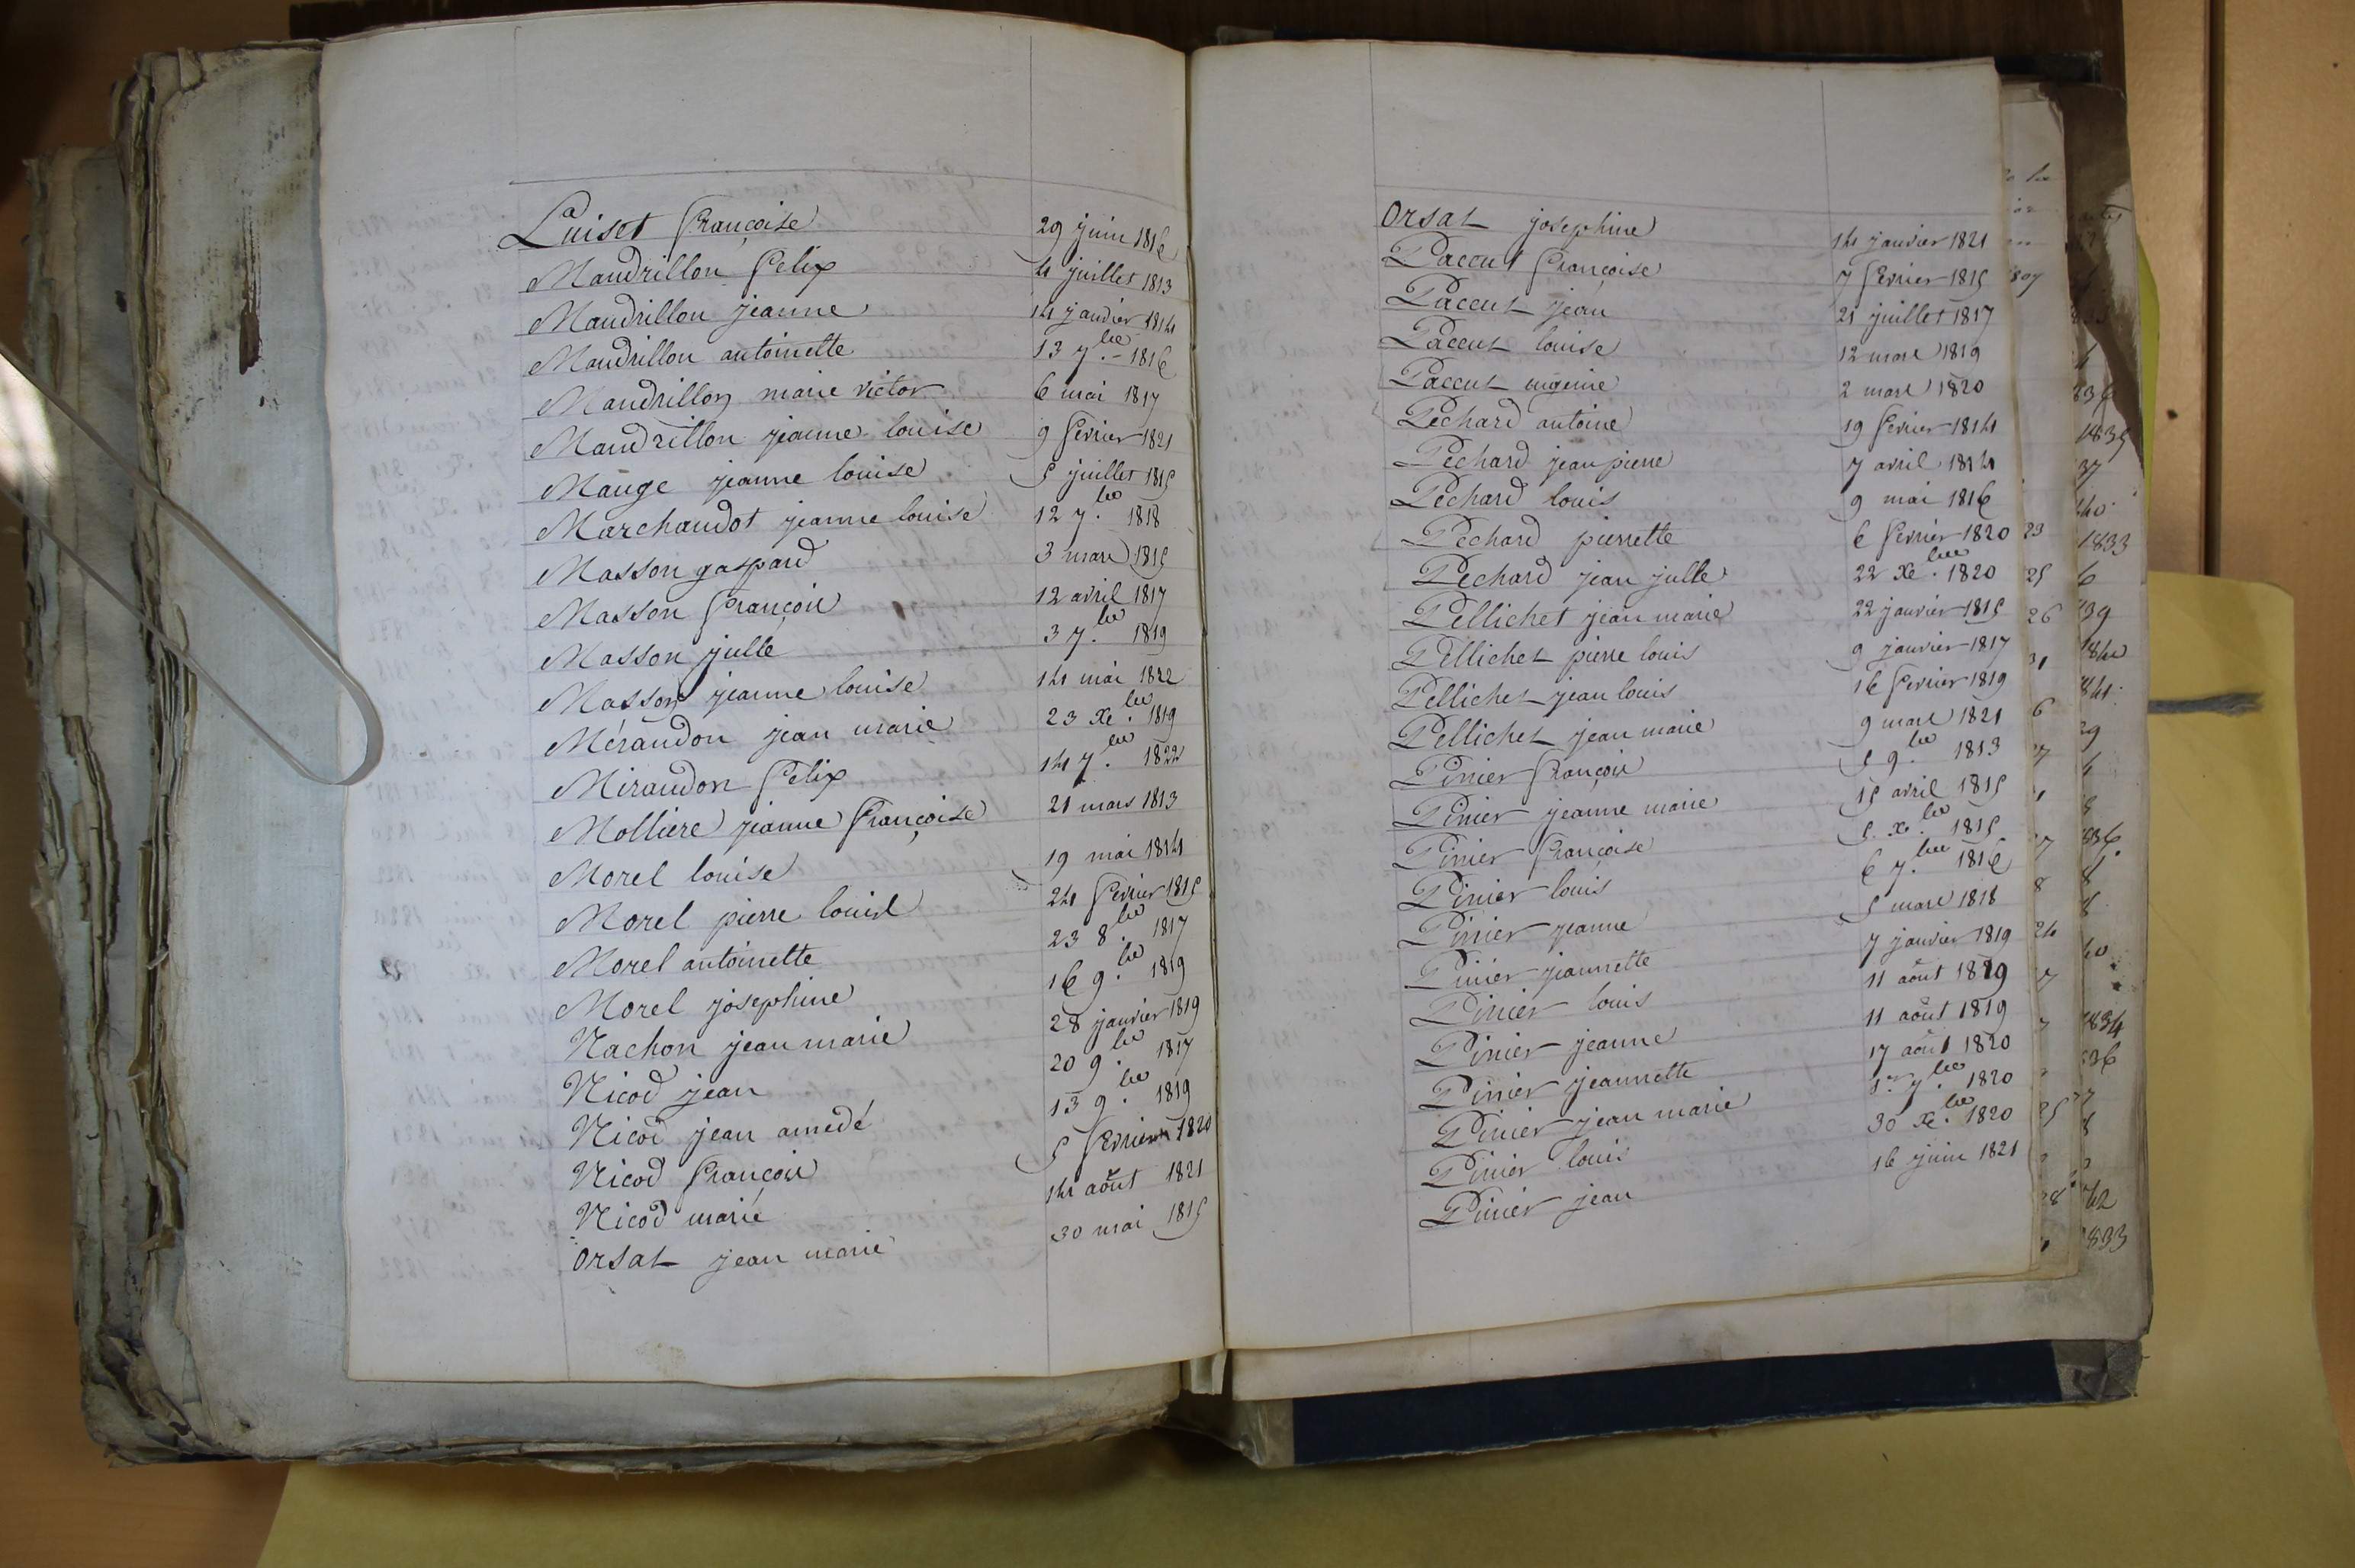 Luiset françoise 29 juin 1816
Mandrillon felix 4 juillet 1813
Mandrillon jeanne 14 janvier 1814
Mandrillon antoinette 13 7.bre 1816
Mandrillon marie victor 6 mai 1817
Mandrillon jeanne louise 9 fevrier 1821
Mauge jeanne louise 5 juillet 1815
Marchandot jeanne louise 12 7.bre 1818
Masson gaspard 3 mars 1815
Masson françois 12 avril 1817
Masson julle 3 7.bre 1819
Masson jeanne louise 14 mai 1822
Méraudon jean marie 23 Xe.bre 1819
Miraudon felix 14 7.bre 1822
Molliere jeanne françoise 21 mars 1813
Morel louise 19 mai 1814
Morel pierre louis 24 fevrier 1815
Morel antoinette 23 8.bre 1817
Morel josephine 16 9.bre 1819
Nachon jean marie 28 janvier 1819
Nicod jean 20 9.bre 1817
Nicod jean amedé 13 9.bre 1819
Nicod françois 5 fevrier 1820
Nicod marie 14 août 1821
Orsat jean marie 30 mai 1815
Orsat josephine 14 janvier 1821
Paccut françoise 7 fevrier 1815
Paccut jean 21 juillet 1817
Paccut louise 12 mars 1819
Paccut eugenie 2 mars 1820
Pechard antoine 19 fevrier 1814
Pechard jean pierre 7 avril 1814
Pechard louis 9 mai 1816
Pechard pierrette 6 fevrier 1820
Pechard jean julle 22 Xe.bre 1820
Pellichet jean marie 22 janvier 1815
Pellichet pierre louis 9 janvier 1817
Pellichet jean louis 16 fevrier 1819
Pellichet jean marie 9 mars 1821
Pinier françois 5 9.bre 1813
Pinier jeanne marie 15 avril 1815
Pinier françoise 5 Xe.bre 1815
Pinier louis 6 7.bre 1816
Pinier jeanne 5 mars 1818
Pinier jeannette 7 janvier 1819
Pinier louis 11 août 1819
Pinier jeanne 11 août 1819
Pinier jeannette 17 août 1820
Pinier jean marie 1er 7.bre 1820
Pinier louis 30 Xe.bre 1820
Pinier jean 16 juin 1821